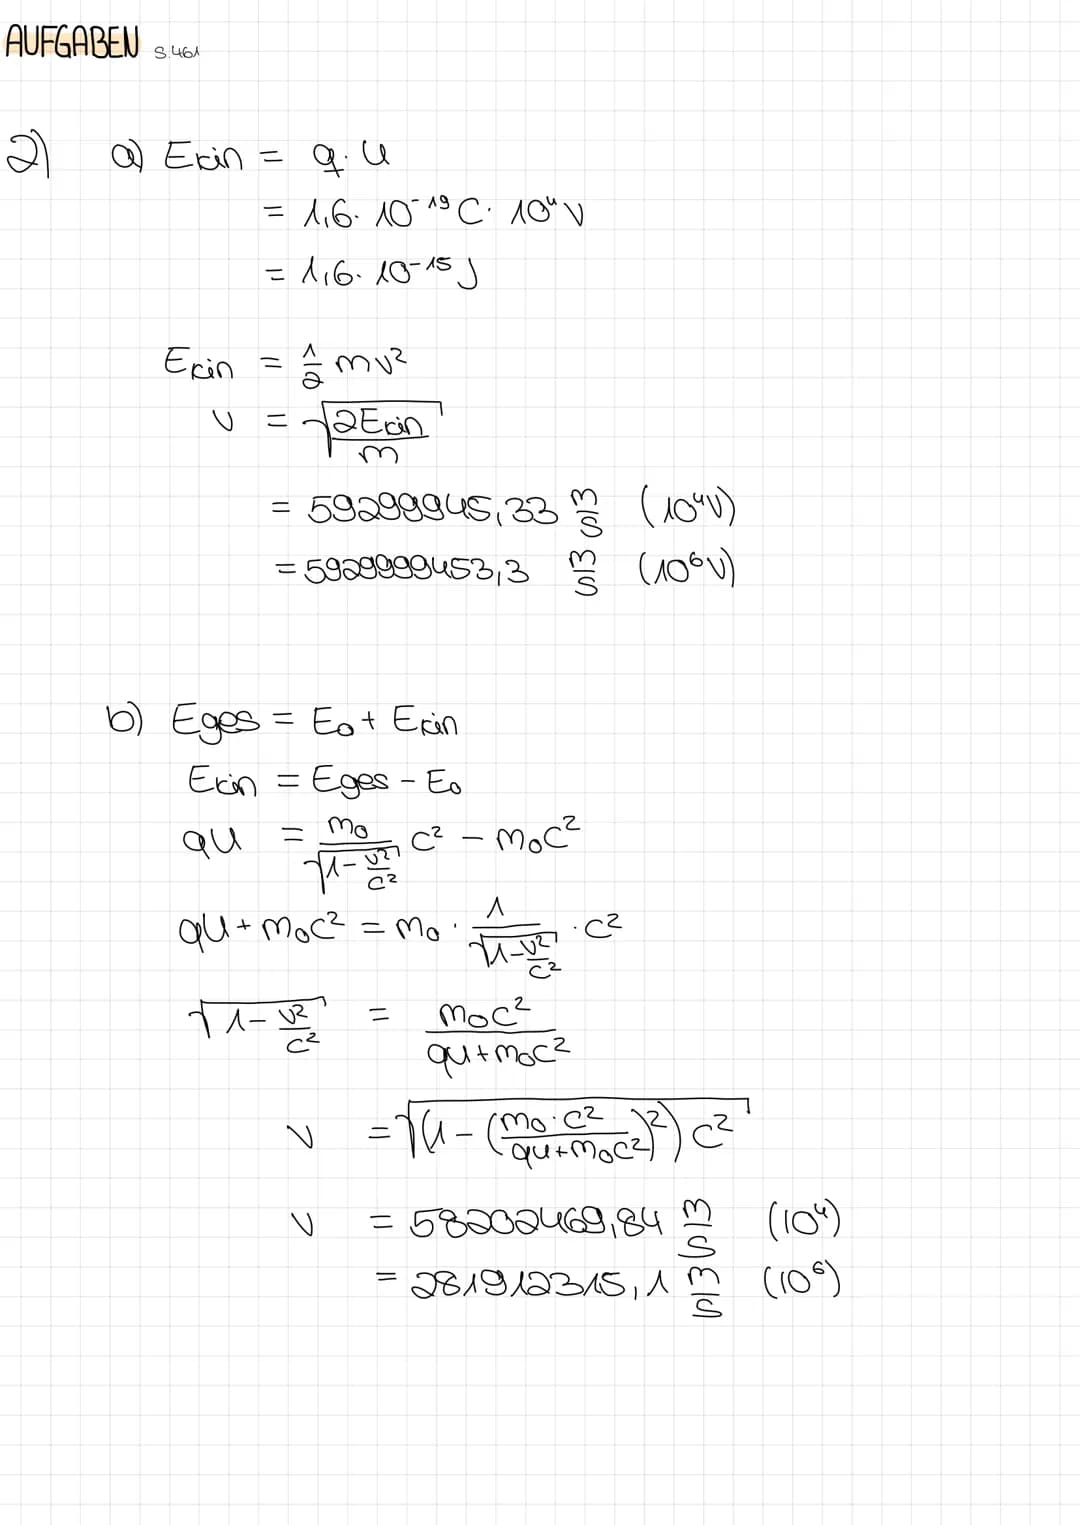 AUFGABEN S.461
2) a) Ekin = q·U
= 1,6·10⁻¹⁹ C·10⁴ V
= 1,6·10⁻¹⁵ J
Ekin = 1/2 mv²
v = √(2Ekin/m)
= 59299945,33 m/s (10⁴V)
= 5929999453,3 m/s (10⁶V)
b) Eges = E₀ + Ekin
Ekin = Eges - E₀
qU = m₀/√(1-v²/c²) c² - m₀c²
qU + m₀c² = m₀ · 1/√(1-v²/c²) · c²
√(1-v²/c²) = m₀c²/(qU+m₀c²)
v = √((1-(m₀·c²/(qU+m₀c²))²)c²)
v = 58202469,84 m/s (10⁴)
= 281912315,1 m/s (10⁶)